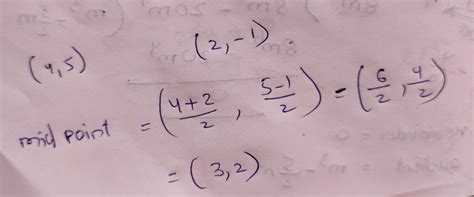 (4,5) (2,-1)
mid point = (4+2/2, 5-1/2) = (6/2, 4/2)
= (3,2)